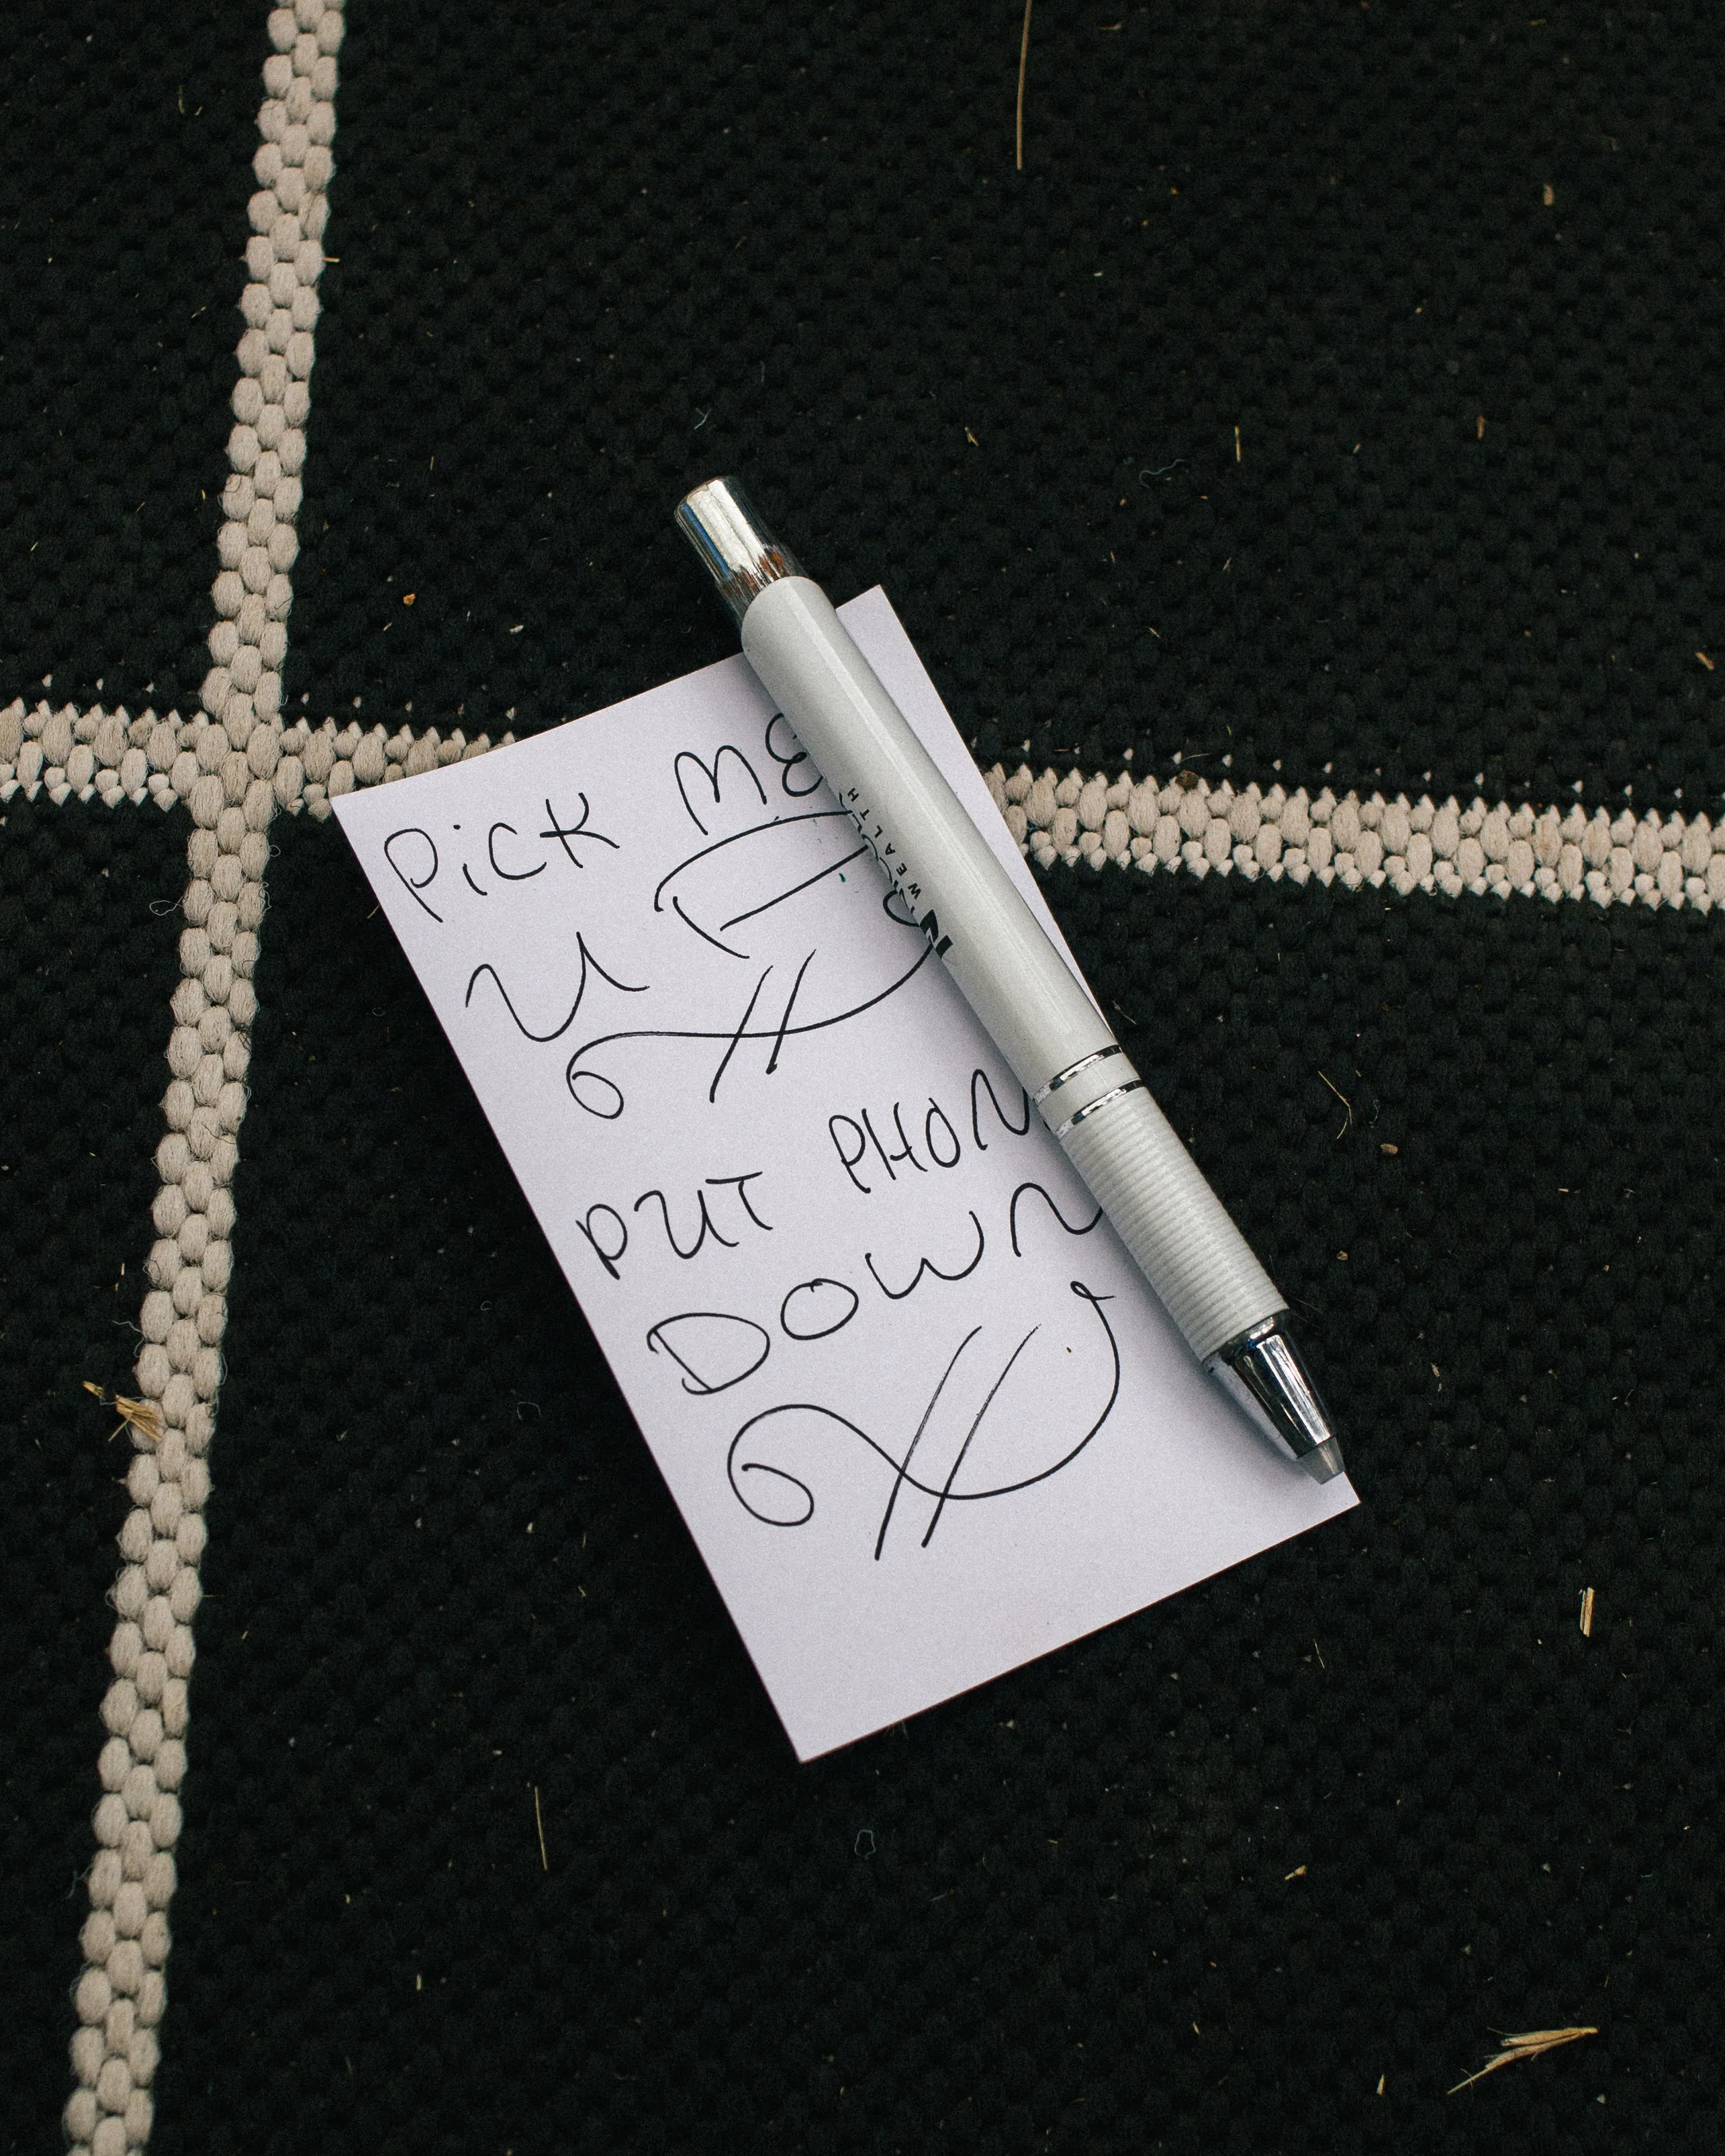 PiCK ME
UP
PUT PHON
DOWN
WEALTH